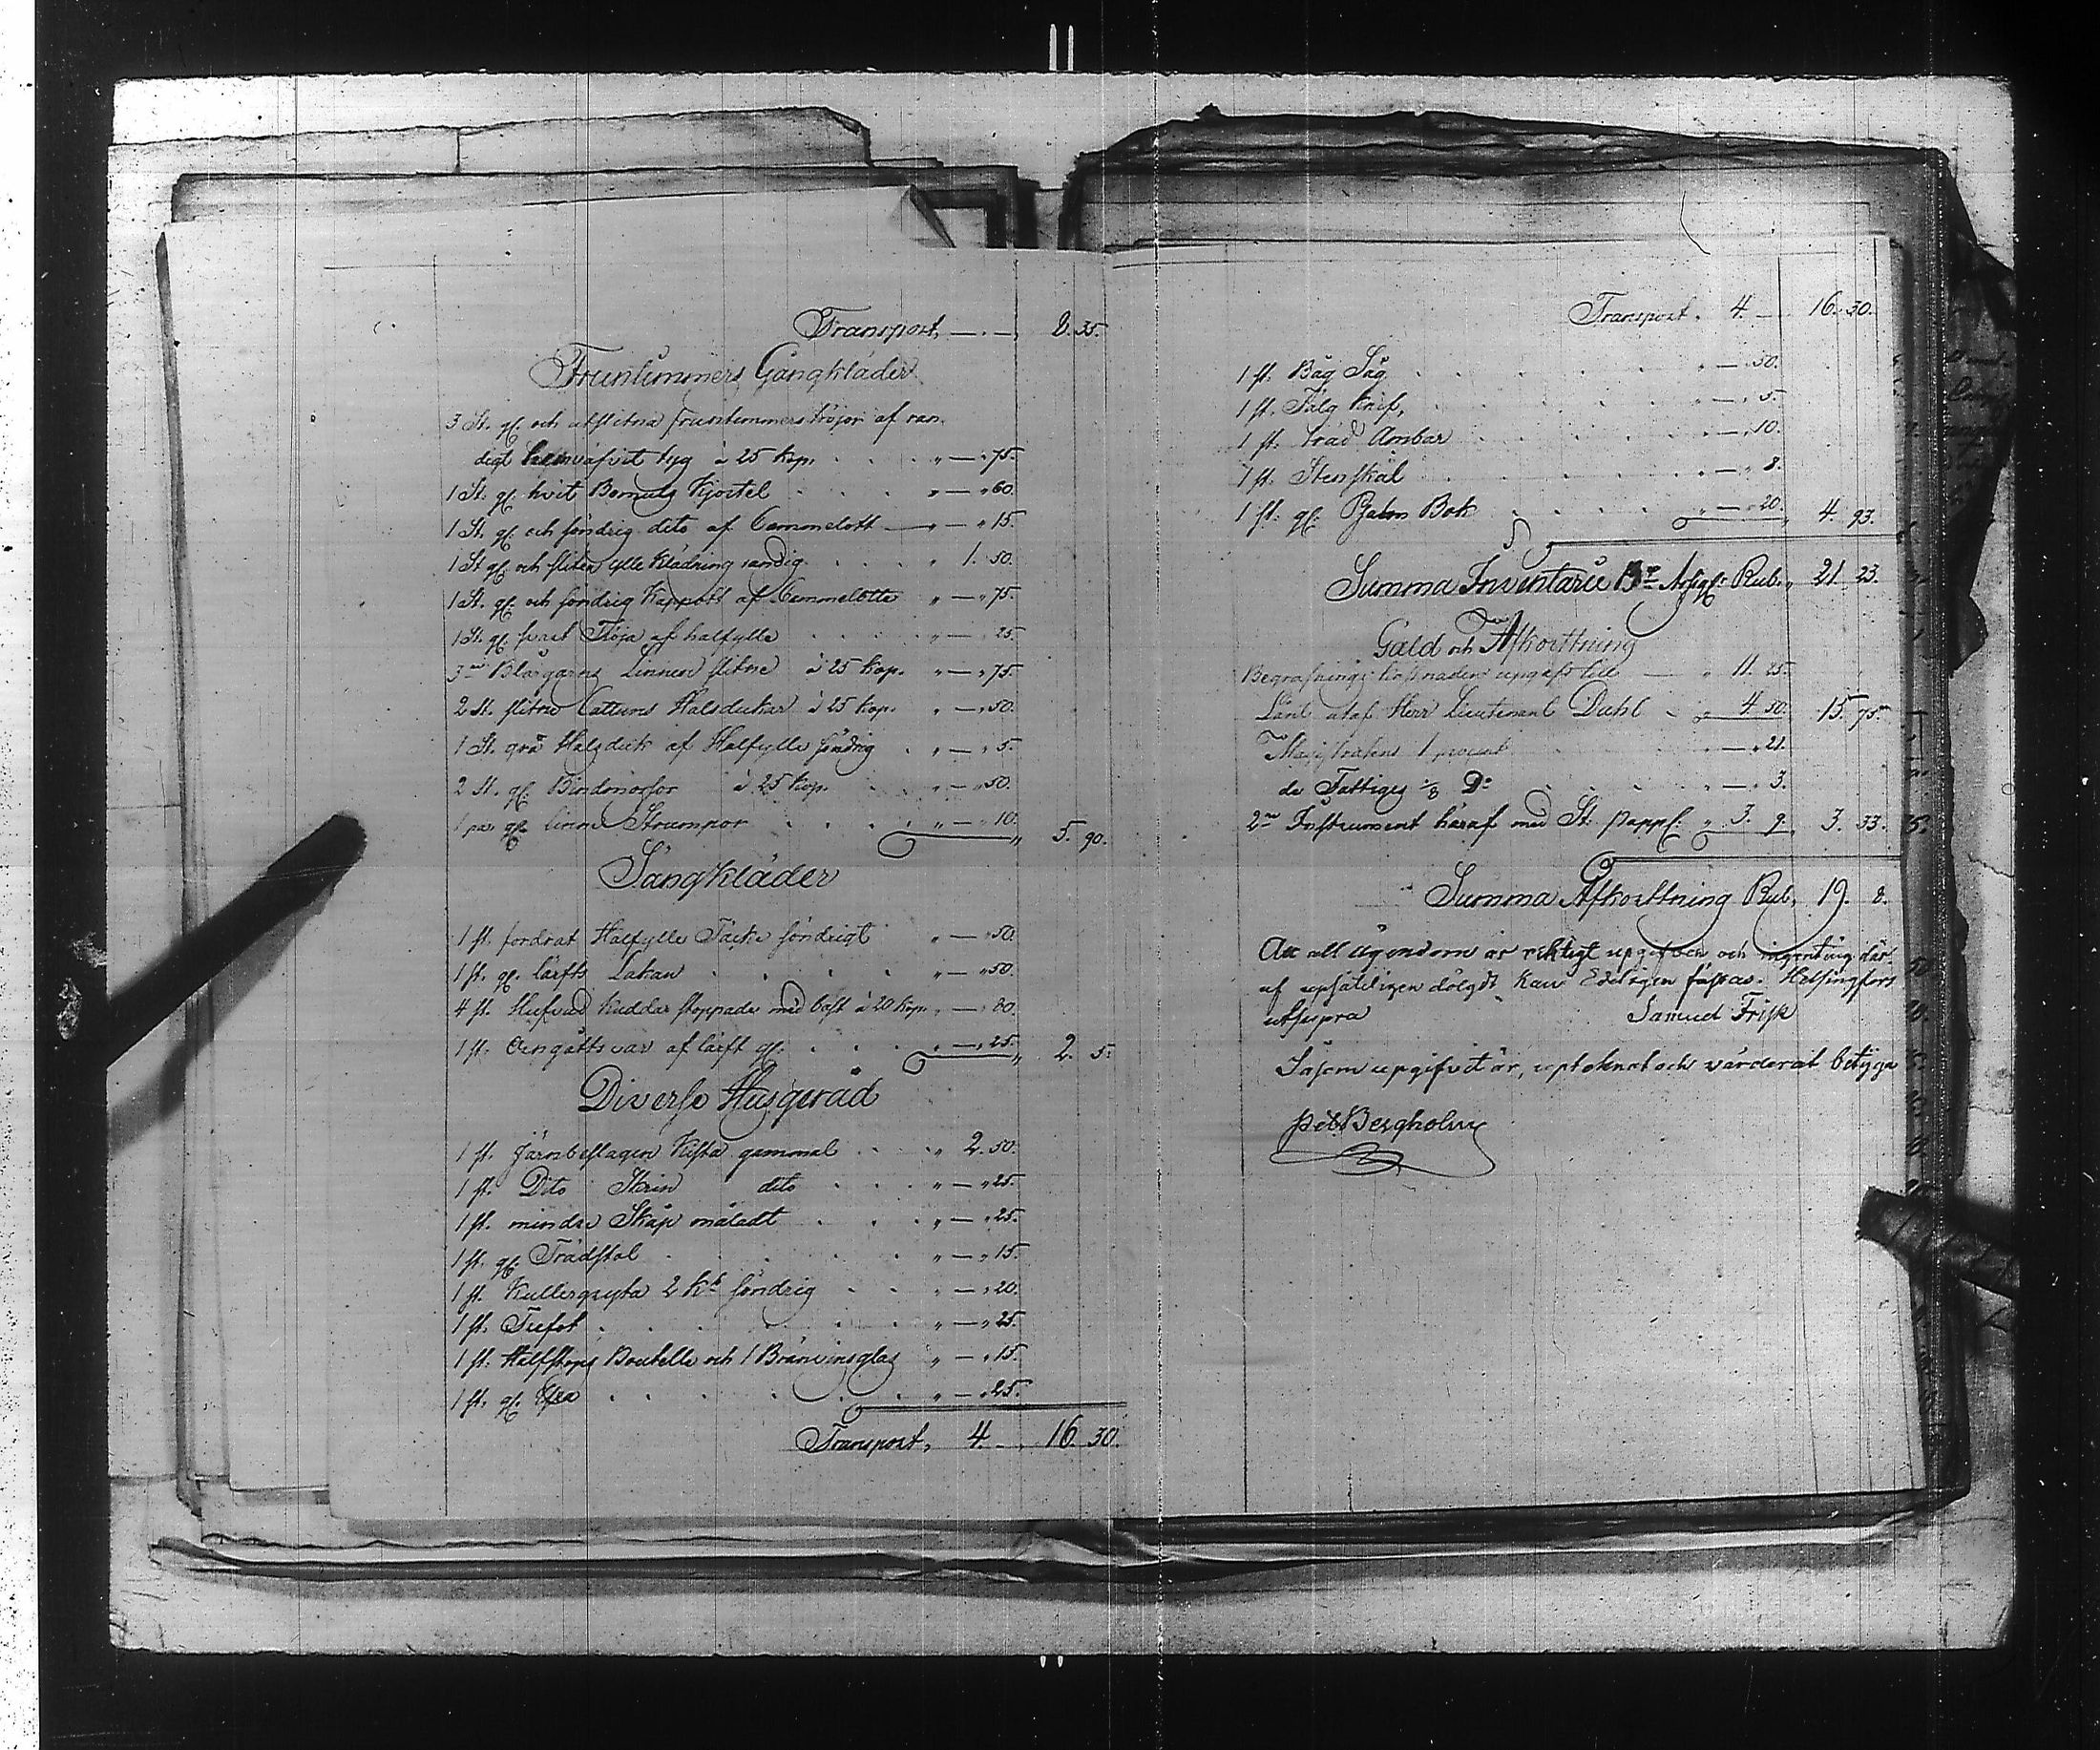 Transport, — . — , 8. 35.
Fruntimmers Gångkläder
3 St. gl. och utslitna fruntimmerströjor af ran-
digt hemväfvit tyg à 25 kop. . . . „ — „ 75.
1 St. gl. hvit Bomuls Kjortel . . . „ — „ 60.
1 St. gl. och söndrig dito af Cammelott — „ — „ 15.
1 St gl. och sliten ylle Klädning randig . . . „ 1. 50.
1 St. gl. och söndrig Kappott af Cammelotte „ — „ 75.
1 St. gl. svart Tröja af halfylle . . . . „ — „ 25.
3ne Blårgarns Linnen slitne à 25 kop. „ — „ 75.
2 St. slitne Cattuns Halsdukar à 25 kop. „ — „ 50.
1 St. grå Halsduk af Halfylle söndrig . „ — „ 5.
2 St. gl. Bindmössor à 25 kop. . . „ — „ 50.
1 par gl. linne Strumpor . . . . „ — „ 10. „ 5. 90.
Sängkläder
1 st. fordrat Halfylle Täcke söndrigt „ — „ 50.
1 st. gl. lärfts Lakan . . . . . „ — „ 50.
4 st. Hufvud kuddar stoppade med bast à 20 kop. „ — „ 80.
1 st. Örngåttsvar af lärft gl. . . . „ — „ 25. „ 2. 5.
Diverse Husgeråd
1 st. Järnbeslagen Kista gammal . . „ 2. 50.
1 st. Dito Skrin dito . . . „ — „ 25.
1 st. mindre Skåp måladt . . . „ — „ 25.
1 st. gl. Trädstol . . . . . „ — „ 15.
1 st. Kullergryta 2 kr söndrig . . „ — „ 20.
1 st. Trefot . . . . . . „ — „ 25.
1 st. Halfstops Boutelle och 1 Bränvinsglas „ — „ 15.
1 st. gl. Yxa . . . . . . „ — „ 25.
Transport, 4. — „ 16. 30.
Transport. 4. — 16. 30.
1 st. Båg Såg . . . . . . „ — „ 50.
1 st. Tälg Knif, . . . . . „ — „ 5.
1 st. Träd Ämbar . . . . . „ — „ 10.
1 st. Stenskål . . . . . . „ — „ 8.
1 st. gl. Psalm Bok . . . . „ — „ 20. „ 4. 93.
Summa Inventarii Rub. „ 21. 23.
Gæld och Afkorttning
Begrafnings kostnader upgåft till — „ 11. 25.
Lånt utaf Herr Lieutenant Dahl . „ 4. 50. 15. 75.
Magistratens 1 procent . . . „ — „ 21.
de Fattiges 1/8 Do . . . . „ — „ 3.
2ne Instrument häraf med St. papp. „ 3. 9. 3. 33.
Summa Afkorttning Rub, 19. 8.
Att all ägendom är riktigt upgifven och ingenting där
af upsåteligen dölgdt kan Edeligen fästas. Helsingfors
utsupra Samuel Frisk
Såsom upgifvit är, upteknat och värderat betyga
Pet Bergholm